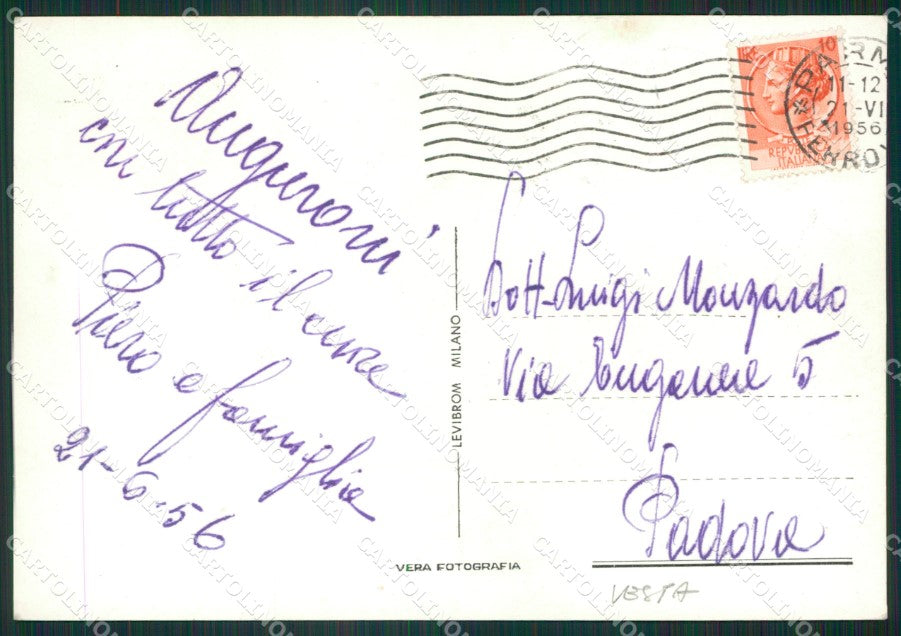 Auguroni
con tutto il cuore
Piero e famiglia
21-6-56
10
REPVBBLICA
ITALIANA
11-12
21-VI
1956
FERROV
Dott. Luigi Monzardo
Via Euganea 5
Padova
LEVIBROM MILANO
VERA FOTOGRAFIA
VESPA
CARTOLINOMANIA